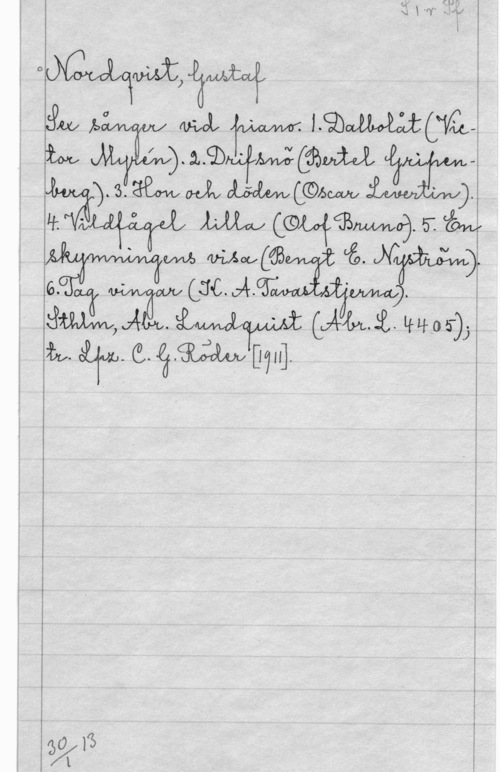 S 1 r Pf
Nordqvist, Gustaf
Sex sånger vid piano. 1. Dalbolåt (Vic-
tor Myrén). 2. Drifsnö (Bertel Gripen-
berg). 3. Hon och döden (Oscar Levertin).
4. Vildfågel lilla (Olof Bruno). 5. En
skymningens visa (Bengt E. Nyström).
6. Tag vingar (K. A. Tavaststjerna).
Sthlm, Abr. Lundquist (Abr. L. 4405);
tr. Lpz. C. G. Röder [1911].
30/1 13